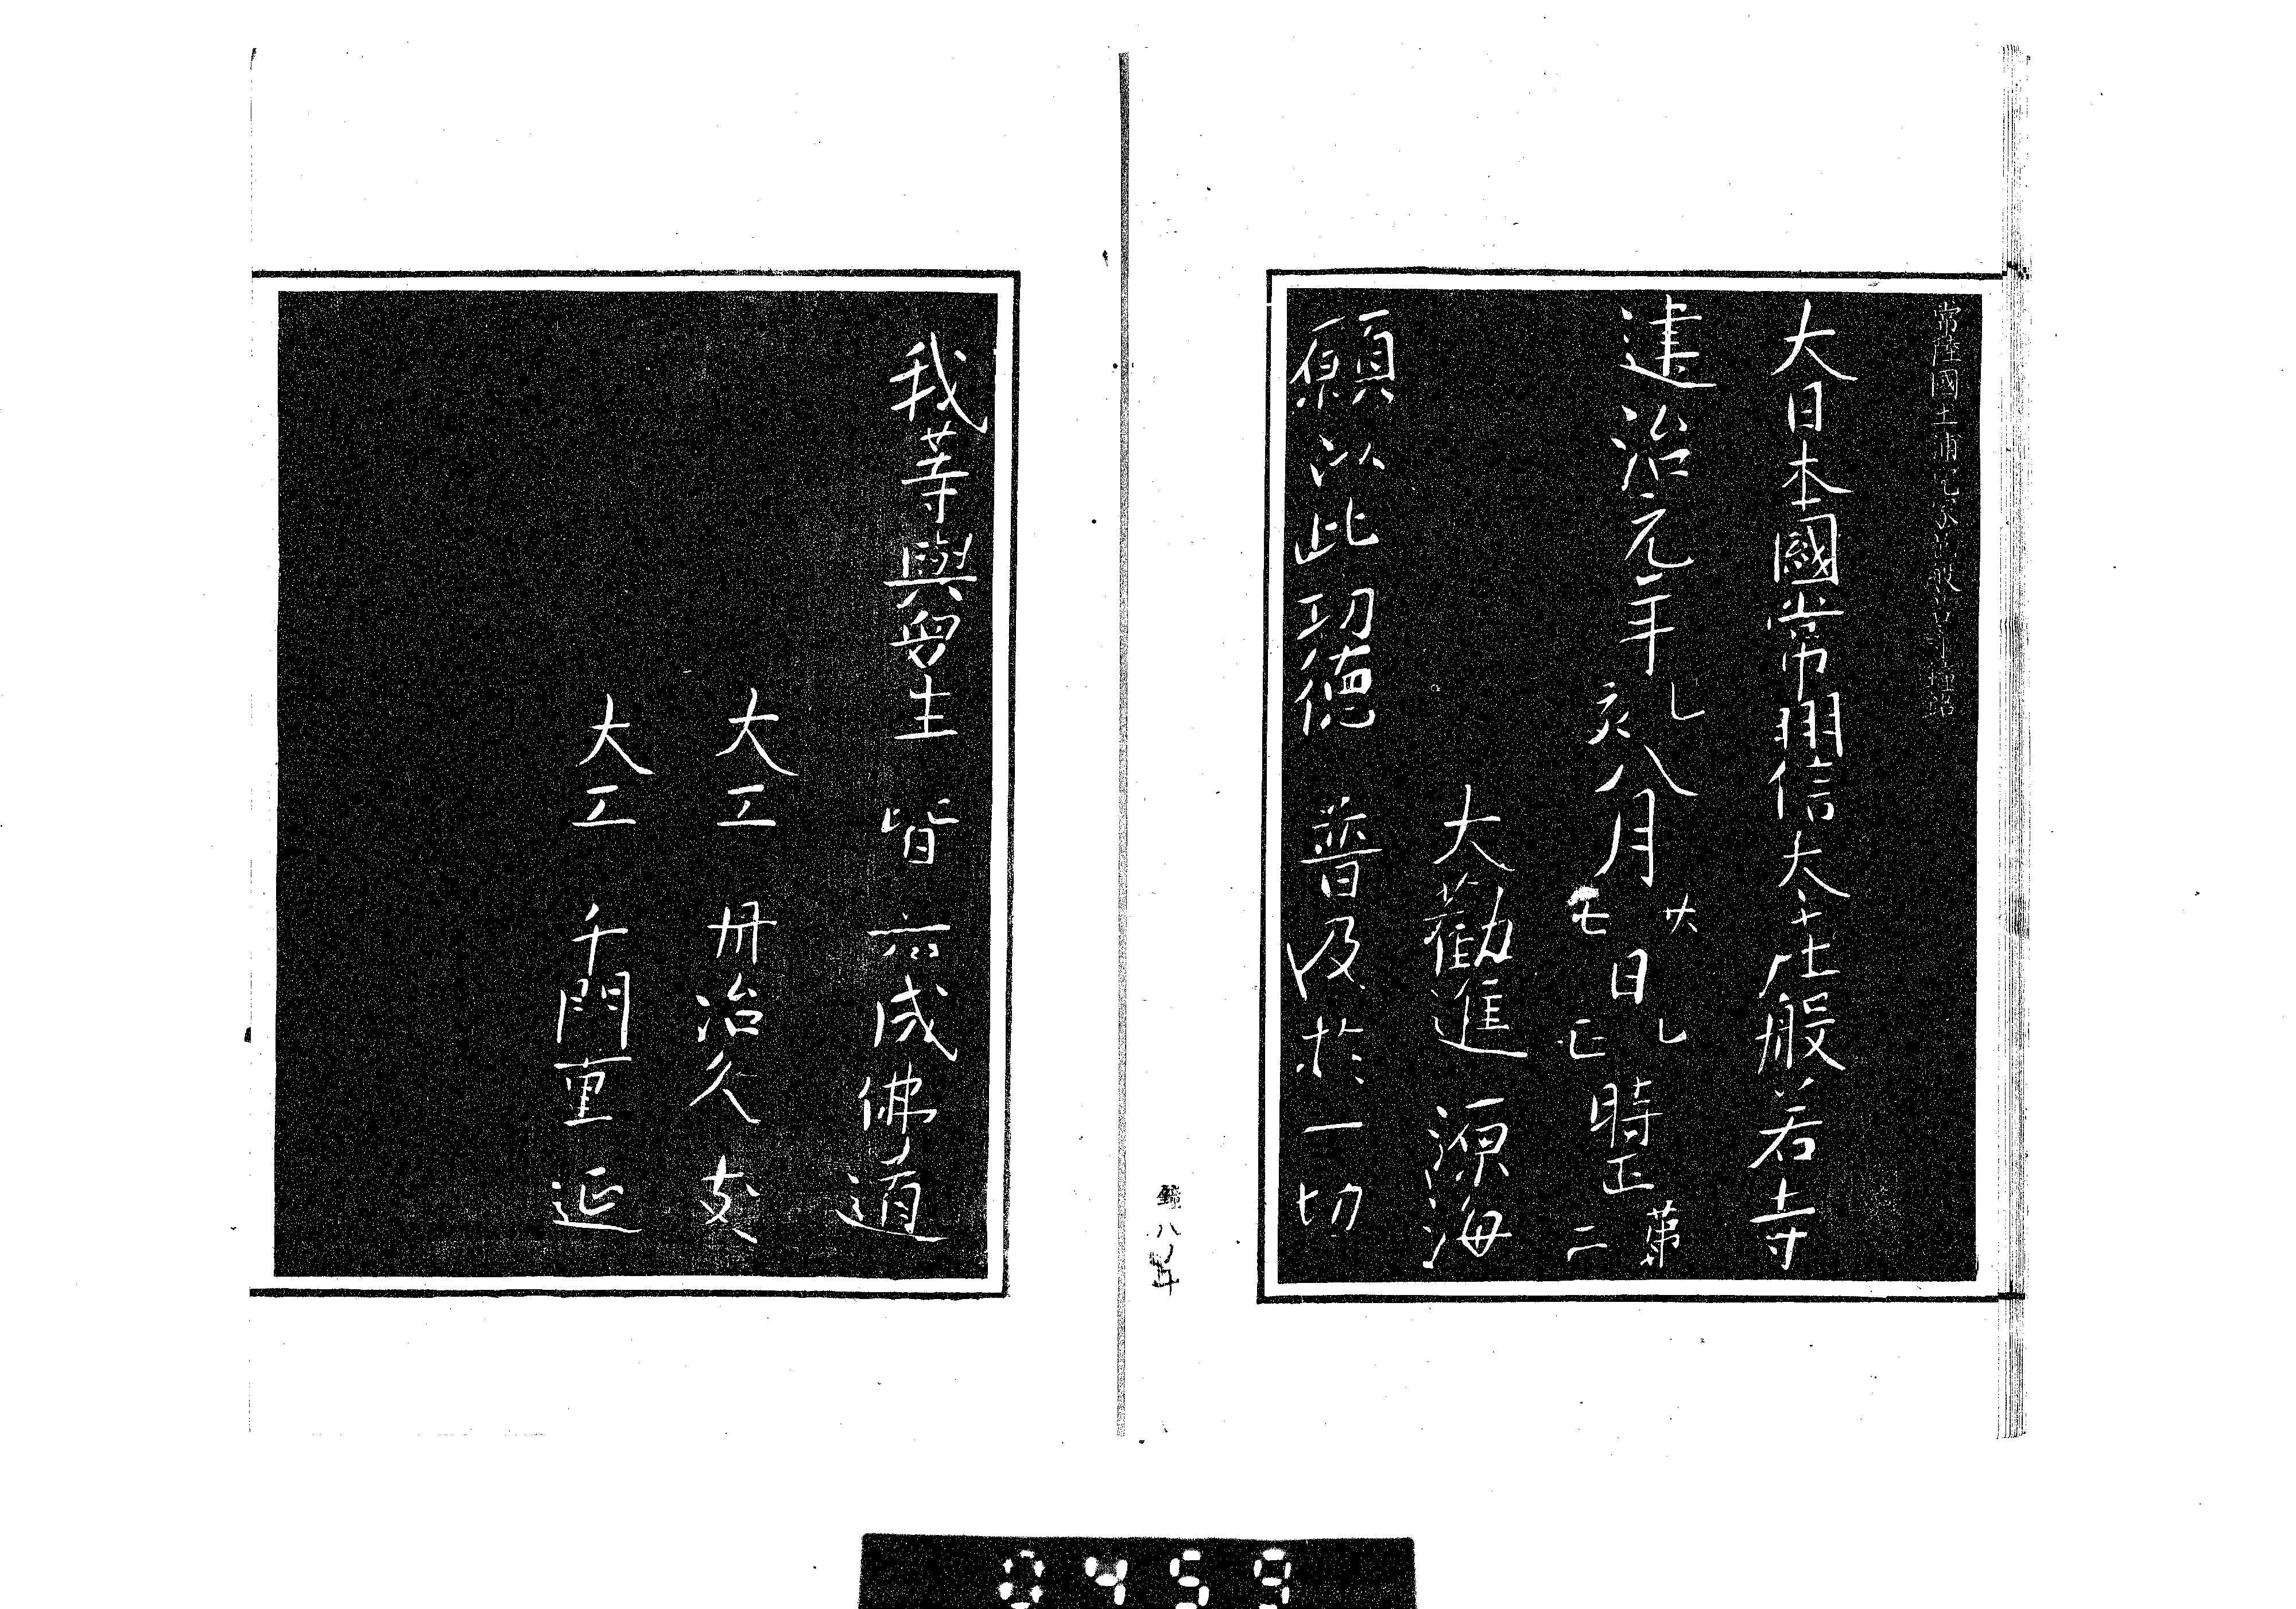 常陸國土浦宍塚般若寺鐘銘
大日本國常州信太庄般若寺
建治元年乙亥八月廿七日乙正時正第二
大勸進 源海
願以此功德 普及於一切
我等與衆生 皆共成佛道
大工 丹治久友
大工 千門重延
鐘八ノ五
0459